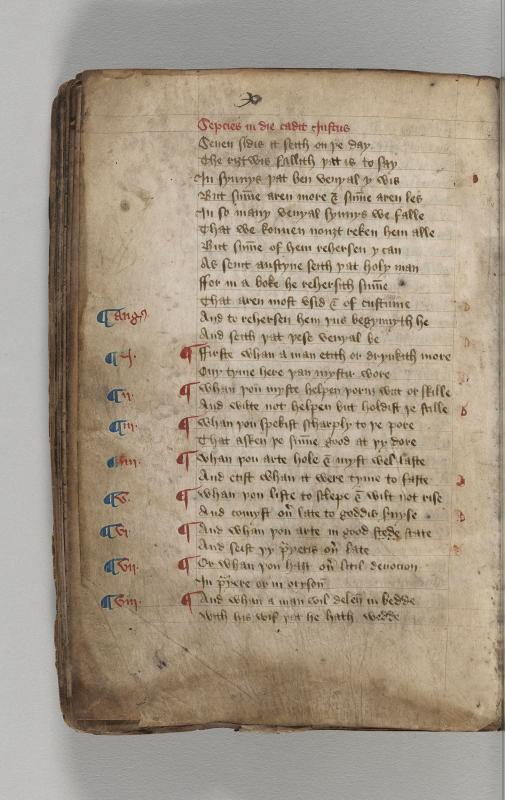 Septies in die cadit Justus
Seuen sides it seith on þe day
The riȝtwis fallith þat is to say
In synnys þat ben venyal y wis
But sum̄e aren more & sum̄e aren les
In so many venyal synnys we falle
That we konnen nouȝt reken hem alle
But sum̄e of hem rehersen y can
As seint austyne seith þat holy man
ffor in a boke he rehersith sum̄e
That aren most vsid & of custume
Aug9 And to rehersen hem þus begynnyth he
And seith þat þese venyal be
¶ i. ¶ ffirste whan a man etith or drynkith more
Ony tyme here þan myster wore
¶ ii. ¶ Whan þou myste helpen þorus wat or skille
And wilte not helpen but holdist þe stille
¶ iii. ¶ Whan þou spekist scharply to þe pore
That asken þe sum̄e good at þy dore
¶ iiii. ¶ Whan þou arte hole & myst wel laste
And etist whan it were tyme to faste
¶ v. ¶ Whan þou liste to slepe & wilt not rise
And comyst on̄ late to goddis s̄uyse
¶ vi. ¶ And whan þou arte in good state
And seist þy p̄yeris on̄ late
¶ vii. ¶ Or whan þou hast on̄ litil deuocion
In p̄yere or in orysou̅
¶ viii. ¶ And whan a man wil delen in bedde
With his wif þat he hath wedde